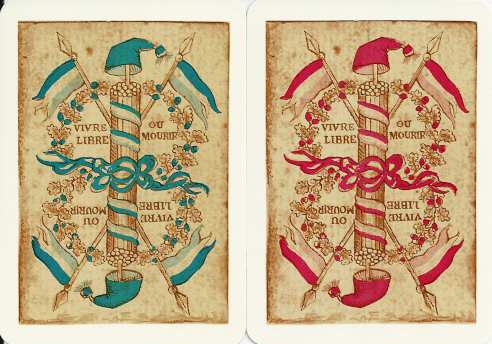 VIVRE
LIBRE
OU
MOURIR
VIVRE
LIBRE
OU
MOURIR
VIVRE
LIBRE
OU
MOURIR
VIVRE
LIBRE
OU
MOURIR